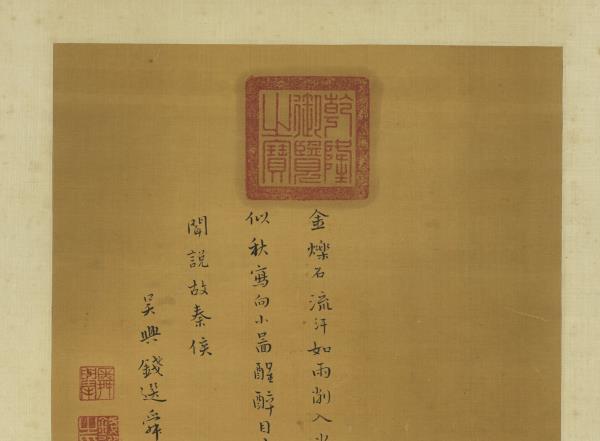 乾隆御覽之寶
金爍石流汗如雨削入
似秋寫向小啚醒醉目
閒說故秦侯
吳興錢選舜
舜舉